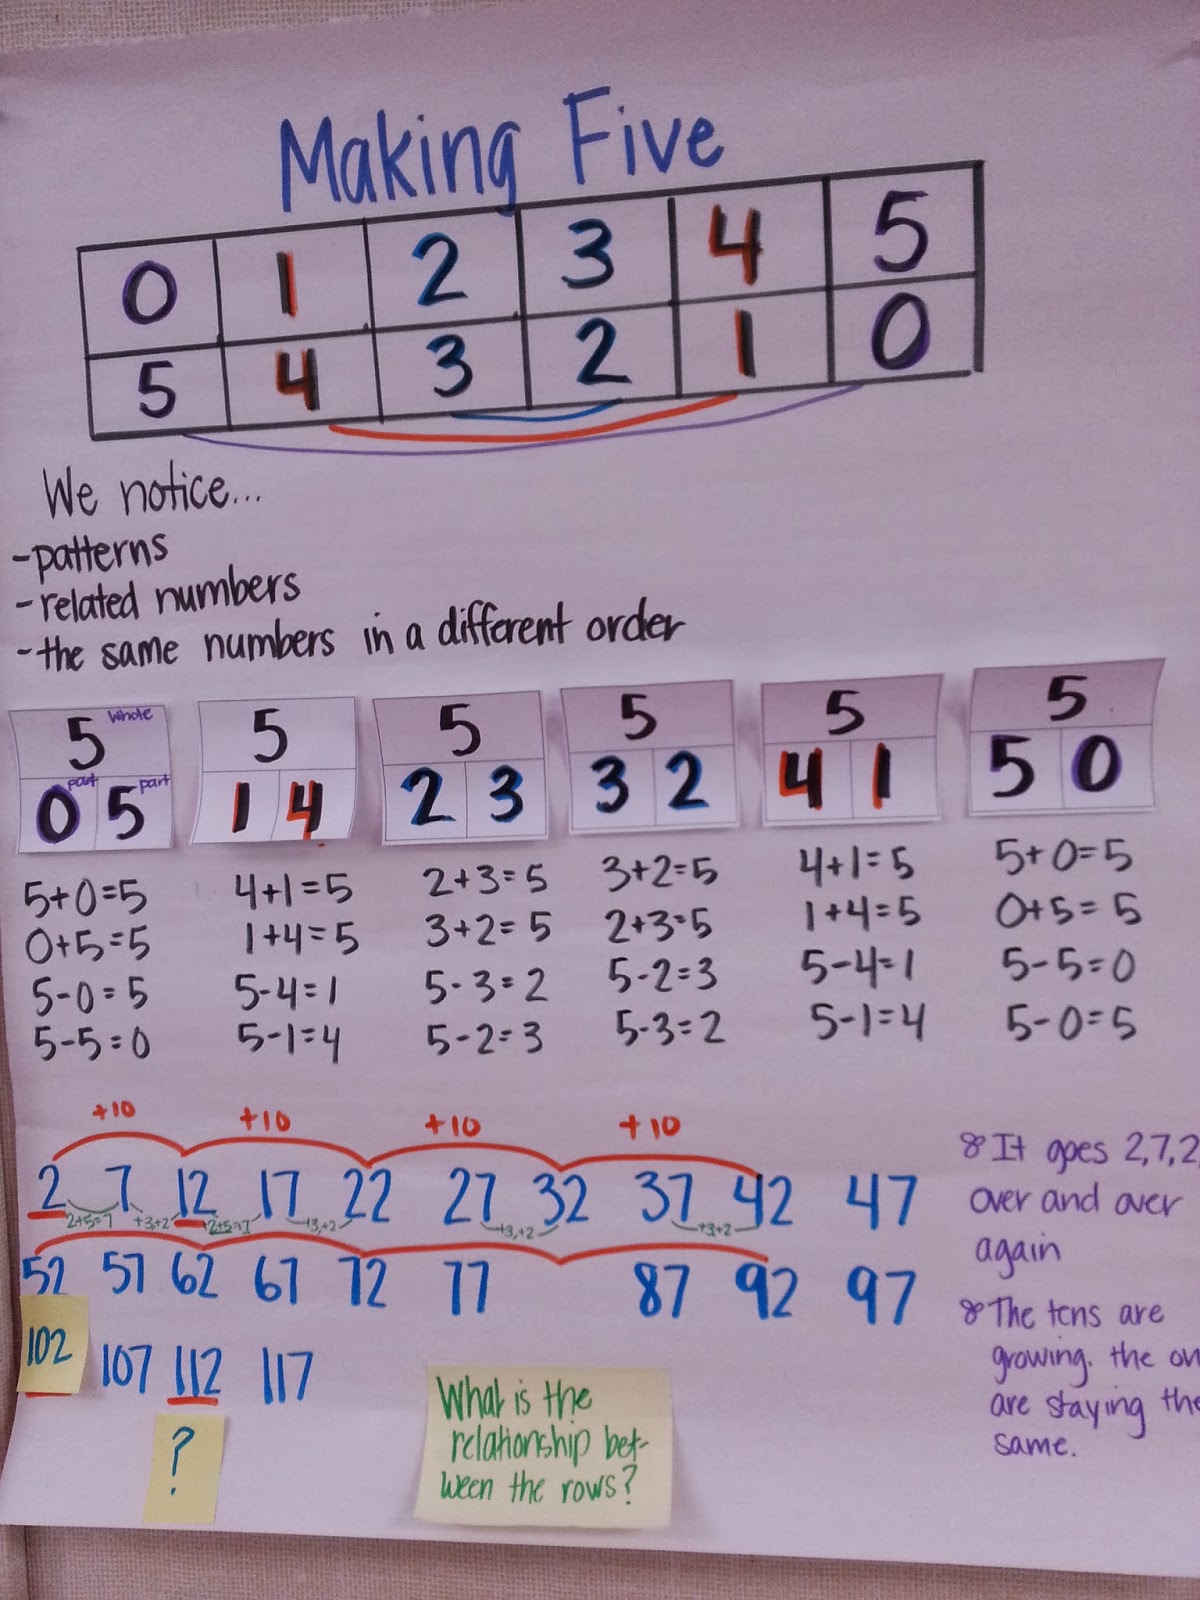 Making Five
0 1 2 3 4 5
5 4 3 2 1 0
We notice...
-patterns
-related numbers
-the same numbers in a different order
5 whole
0 part 5 part
5
1 4
5
2 3
5
3 2
5
4 1
5
5 0
5+0=5
0+5=5
5-0=5
5-5=0
4+1=5
1+4=5
5-4=1
5-1=4
2+3=5
3+2=5
5-3=2
5-2=3
3+2=5
2+3=5
5-2=3
5-3=2
4+1=5
1+4=5
5-4=1
5-1=4
5+0=5
0+5=5
5-5=0
5-0=5
+10 +10 +10 +10
2 7 12 17 22 27 32 37 42 47
2+5=7 +3,+2 2+5=7 +3,+2 +3,+2 +3+2
52 57 62 67 72 77 87 92 97
102 107 112 117
?
What is the
relationship bet-
ween the rows?
It goes 2,7,2
over and over
again
The tens are
growing. the on
are staying the
same.